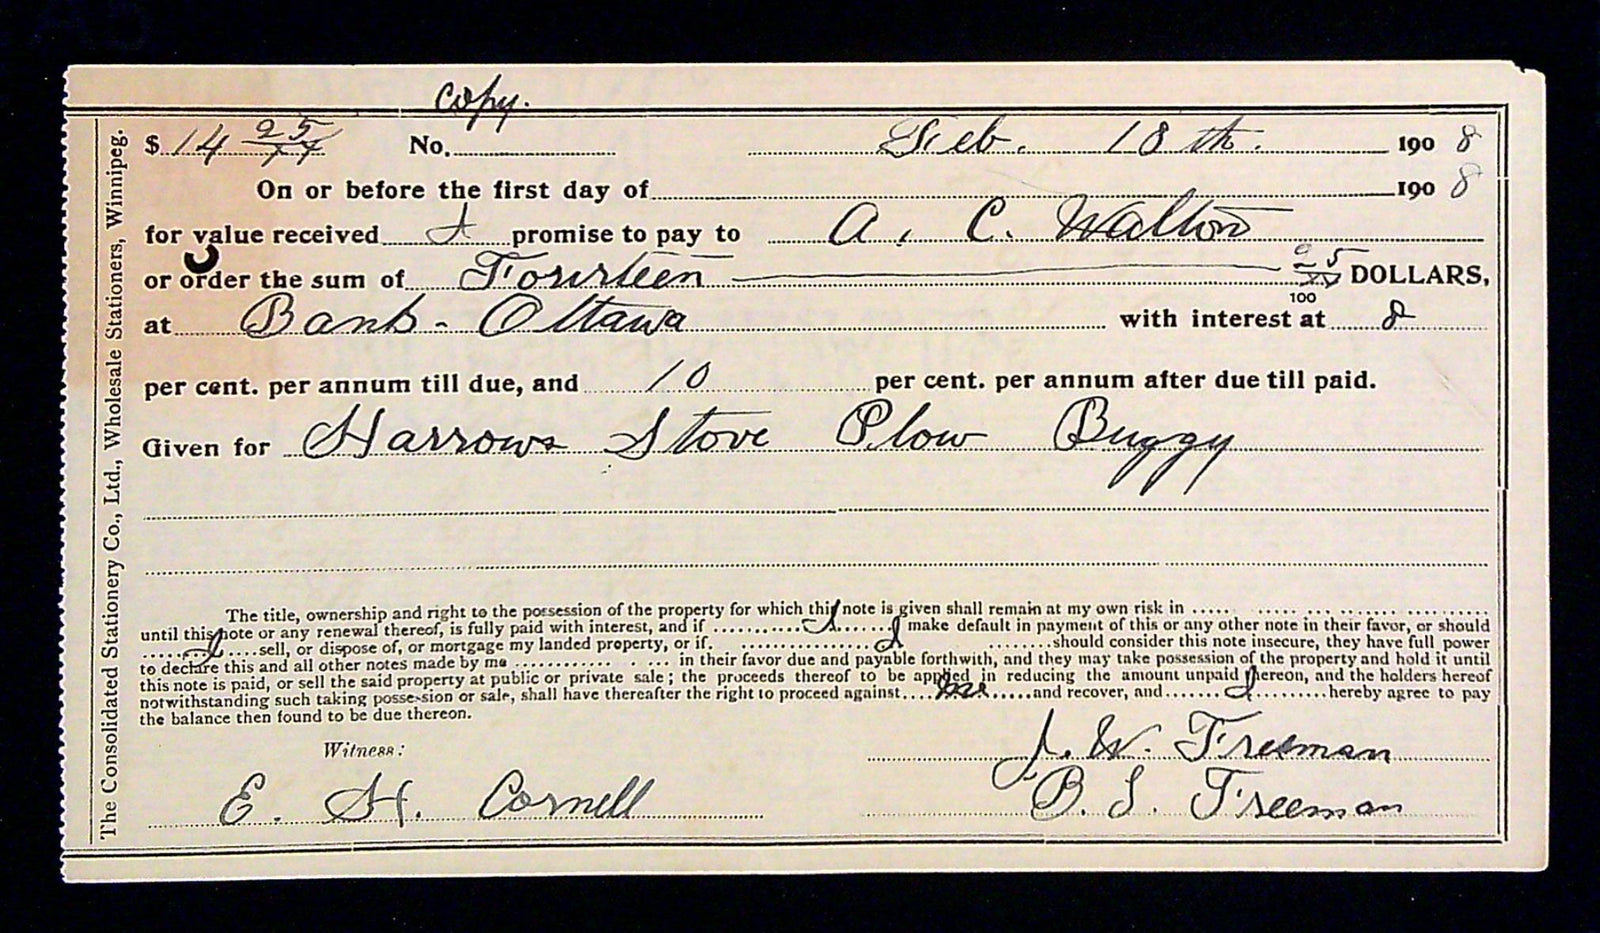 copy.
$ 14 25/xx No. Feb. 18th. 1908
On or before the first day of 1908
for value received I promise to pay to A. C. Walton
or order the sum of Fourteen 25/xx/100 DOLLARS,
at Bank - Ottawa with interest at 8
per cent. per annum till due, and 10 per cent. per annum after due till paid.
Given for Harrows Stove Plow Buggy
The title, ownership and right to the possession of the property for which this note is given shall remain at my own risk in
until this note or any renewal thereof, is fully paid with interest, and if I make default in payment of this or any other note in their favor, or should
I sell, or dispose of, or mortgage my landed property, or if I should consider this note insecure, they have full power
to declare this and all other notes made by me in their favor due and payable forthwith, and they may take possession of the property and hold it until
this note is paid, or sell the said property at public or private sale; the proceeds thereof to be applied in reducing the amount unpaid thereon, and the holders hereof
notwithstanding such taking possession or sale, shall have thereafter the right to proceed against me and recover, and I hereby agree to pay
the balance then found to be due thereon.
J. W. Freeman
Witness:
E. H. Cornell B. S. Freeman
The Consolidated Stationery Co., Ltd., Wholesale Stationers, Winnipeg.